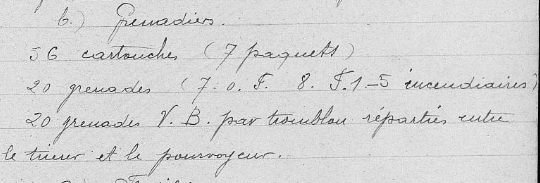 b.) Grenadiers.
56 cartouches (7 paquets)
20 grenades (7. O. F. 8. F.1 - 5 incendiaires)
20 grenades V. B. par tromblon réparties entre
le tireur et le pourvoyeur.